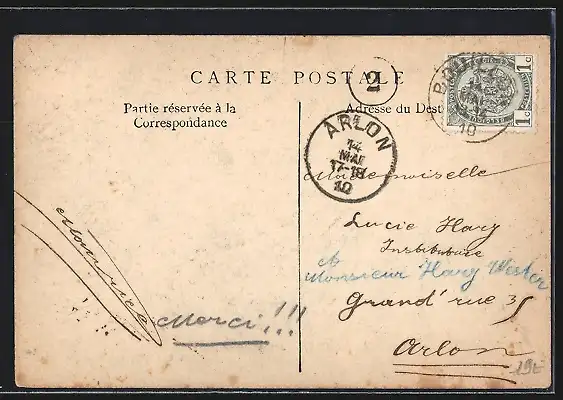 CARTE POSTALE
2
Partie réservée à la
Correspondance
Adresse du Dest
1c
1c
10
ARLON
14
MAI
17-18
10
Mademoiselle
Lucie Hary
Institutrice
Monsieur Hary Wester
Grand' rue 35
Arlon
Maurice
Merci!!!